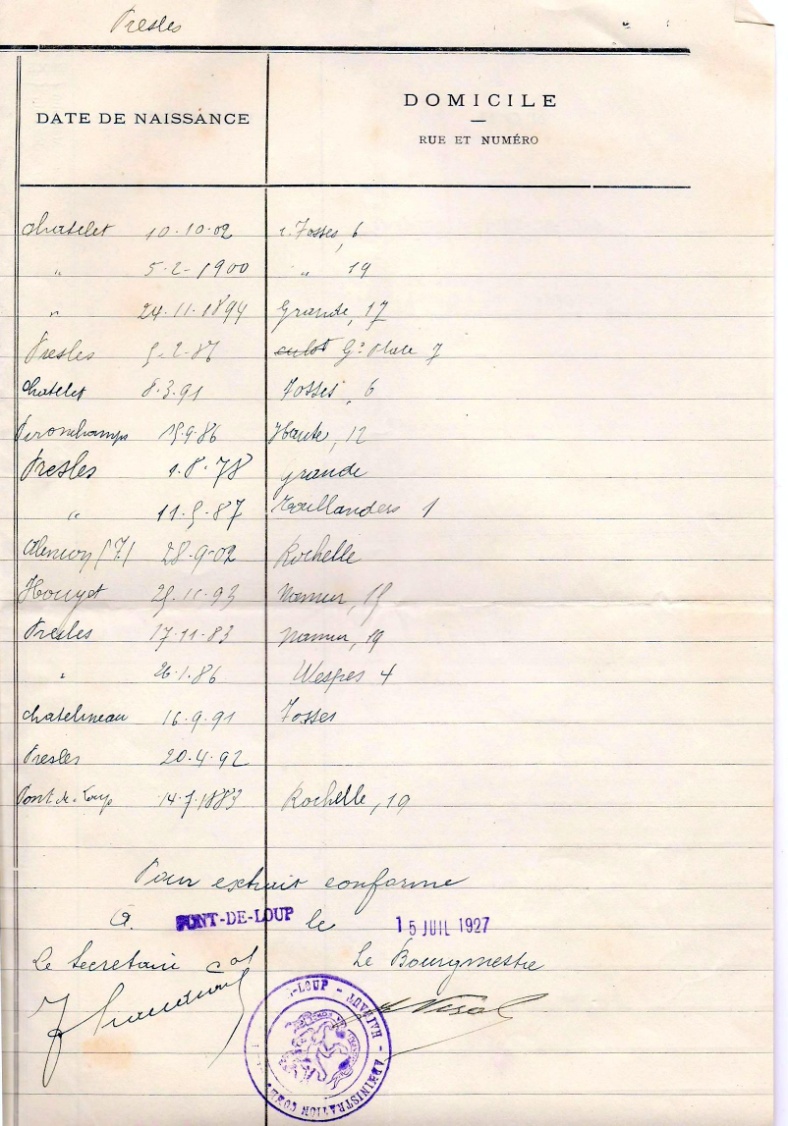 Presles
DATE DE NAISSANCE
DOMICILE
RUE ET NUMÉRO
chatelet 10-10-02 r. Fosses, 6
" 5-2-1900 " 19
" 24.11.1894 Grande, 17
Presles 5-2-87 Gde Place 7
chatelet 8.3.91 Fosses, 6
Pironchamps 15.9.86 Haute, 12
Presles 1.8.78 grande
" 11.5.87 Taillanders 1
28-9-02 Rochelle
Houyet 25.11.93 Namur, 15
Presles 17-11-83 Namur, 19
" 26.1.86 Wespes 4
chatelineau 16.9.91 Fosses
Presles 20.4.92
Pont-de-Loup 14.7.1883 Rochelle, 19
Pour extrait conforme
A. PONT-DE-LOUP le 15 JUIL 1927
Le Secretair cal Le Bourgmestre
-LOUP - HAINAUT - ADMINISTRATION COM